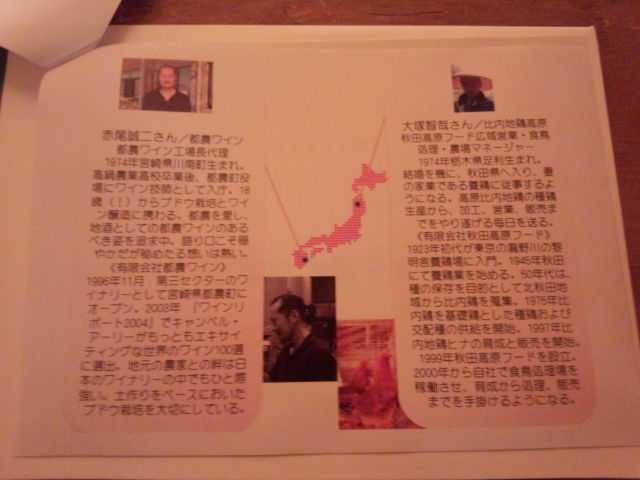 赤尾誠二さん／都農ワイン
都農ワイン工場長代理
1974年宮崎県川南町生まれ。
高鍋農業高校卒業後、都農町役
場にワイン技師として入庁。18
歳（！）からブドウ栽培とワイ
ン醸造に携わる。都農を愛し、
地酒としての都農ワインのある
べき姿を追求中。語り口こそ穏
やかだが秘めたる想いは熱い。
《有限会社都農ワイン》
1996年11月　第三セクターのワ
イナリーとして宮崎県都農町に
オープン。2003年　『ワインリ
ポート2004』でキャンベル・
アーリーがもっともエキサイ
ティングな世界のワイン100選
に選出。地元の農家との絆は日
本のワイナリーの中でもひと際
強い。土作りをベースにおいた
ブドウ栽培を大切にしている。
大塚智哉さん／比内地鶏高原
秋田高原フード広域営業・食鳥
処理・農場マネージャー
1974年栃木県足利生まれ。
結婚を機に、秋田県へ入り、妻
の家業である養鶏に従事するよ
うになる。高原比内地鶏の種鶏
生産から、加工、営業、販売ま
でをやり遂げる毎日を送る。
《有限会社秋田高原フード》
1923年初代が東京の瀧野川の黎
明舎養鶏場に入門。1945年秋田
にて養鶏業を始める。50年代は、
種の保存を目的として北秋田地
域から比内鶏を蒐集。1975年比
内鶏を基礎鶏とした種鶏および
交配種の供給を開始。1997年比
内地鶏ヒナの育成と販売を開始。
1999年秋田高原フードを設立。
2000年から自社で食鳥処理場を
稼働させ、育成から処理、販売
までを手掛けるようになる。